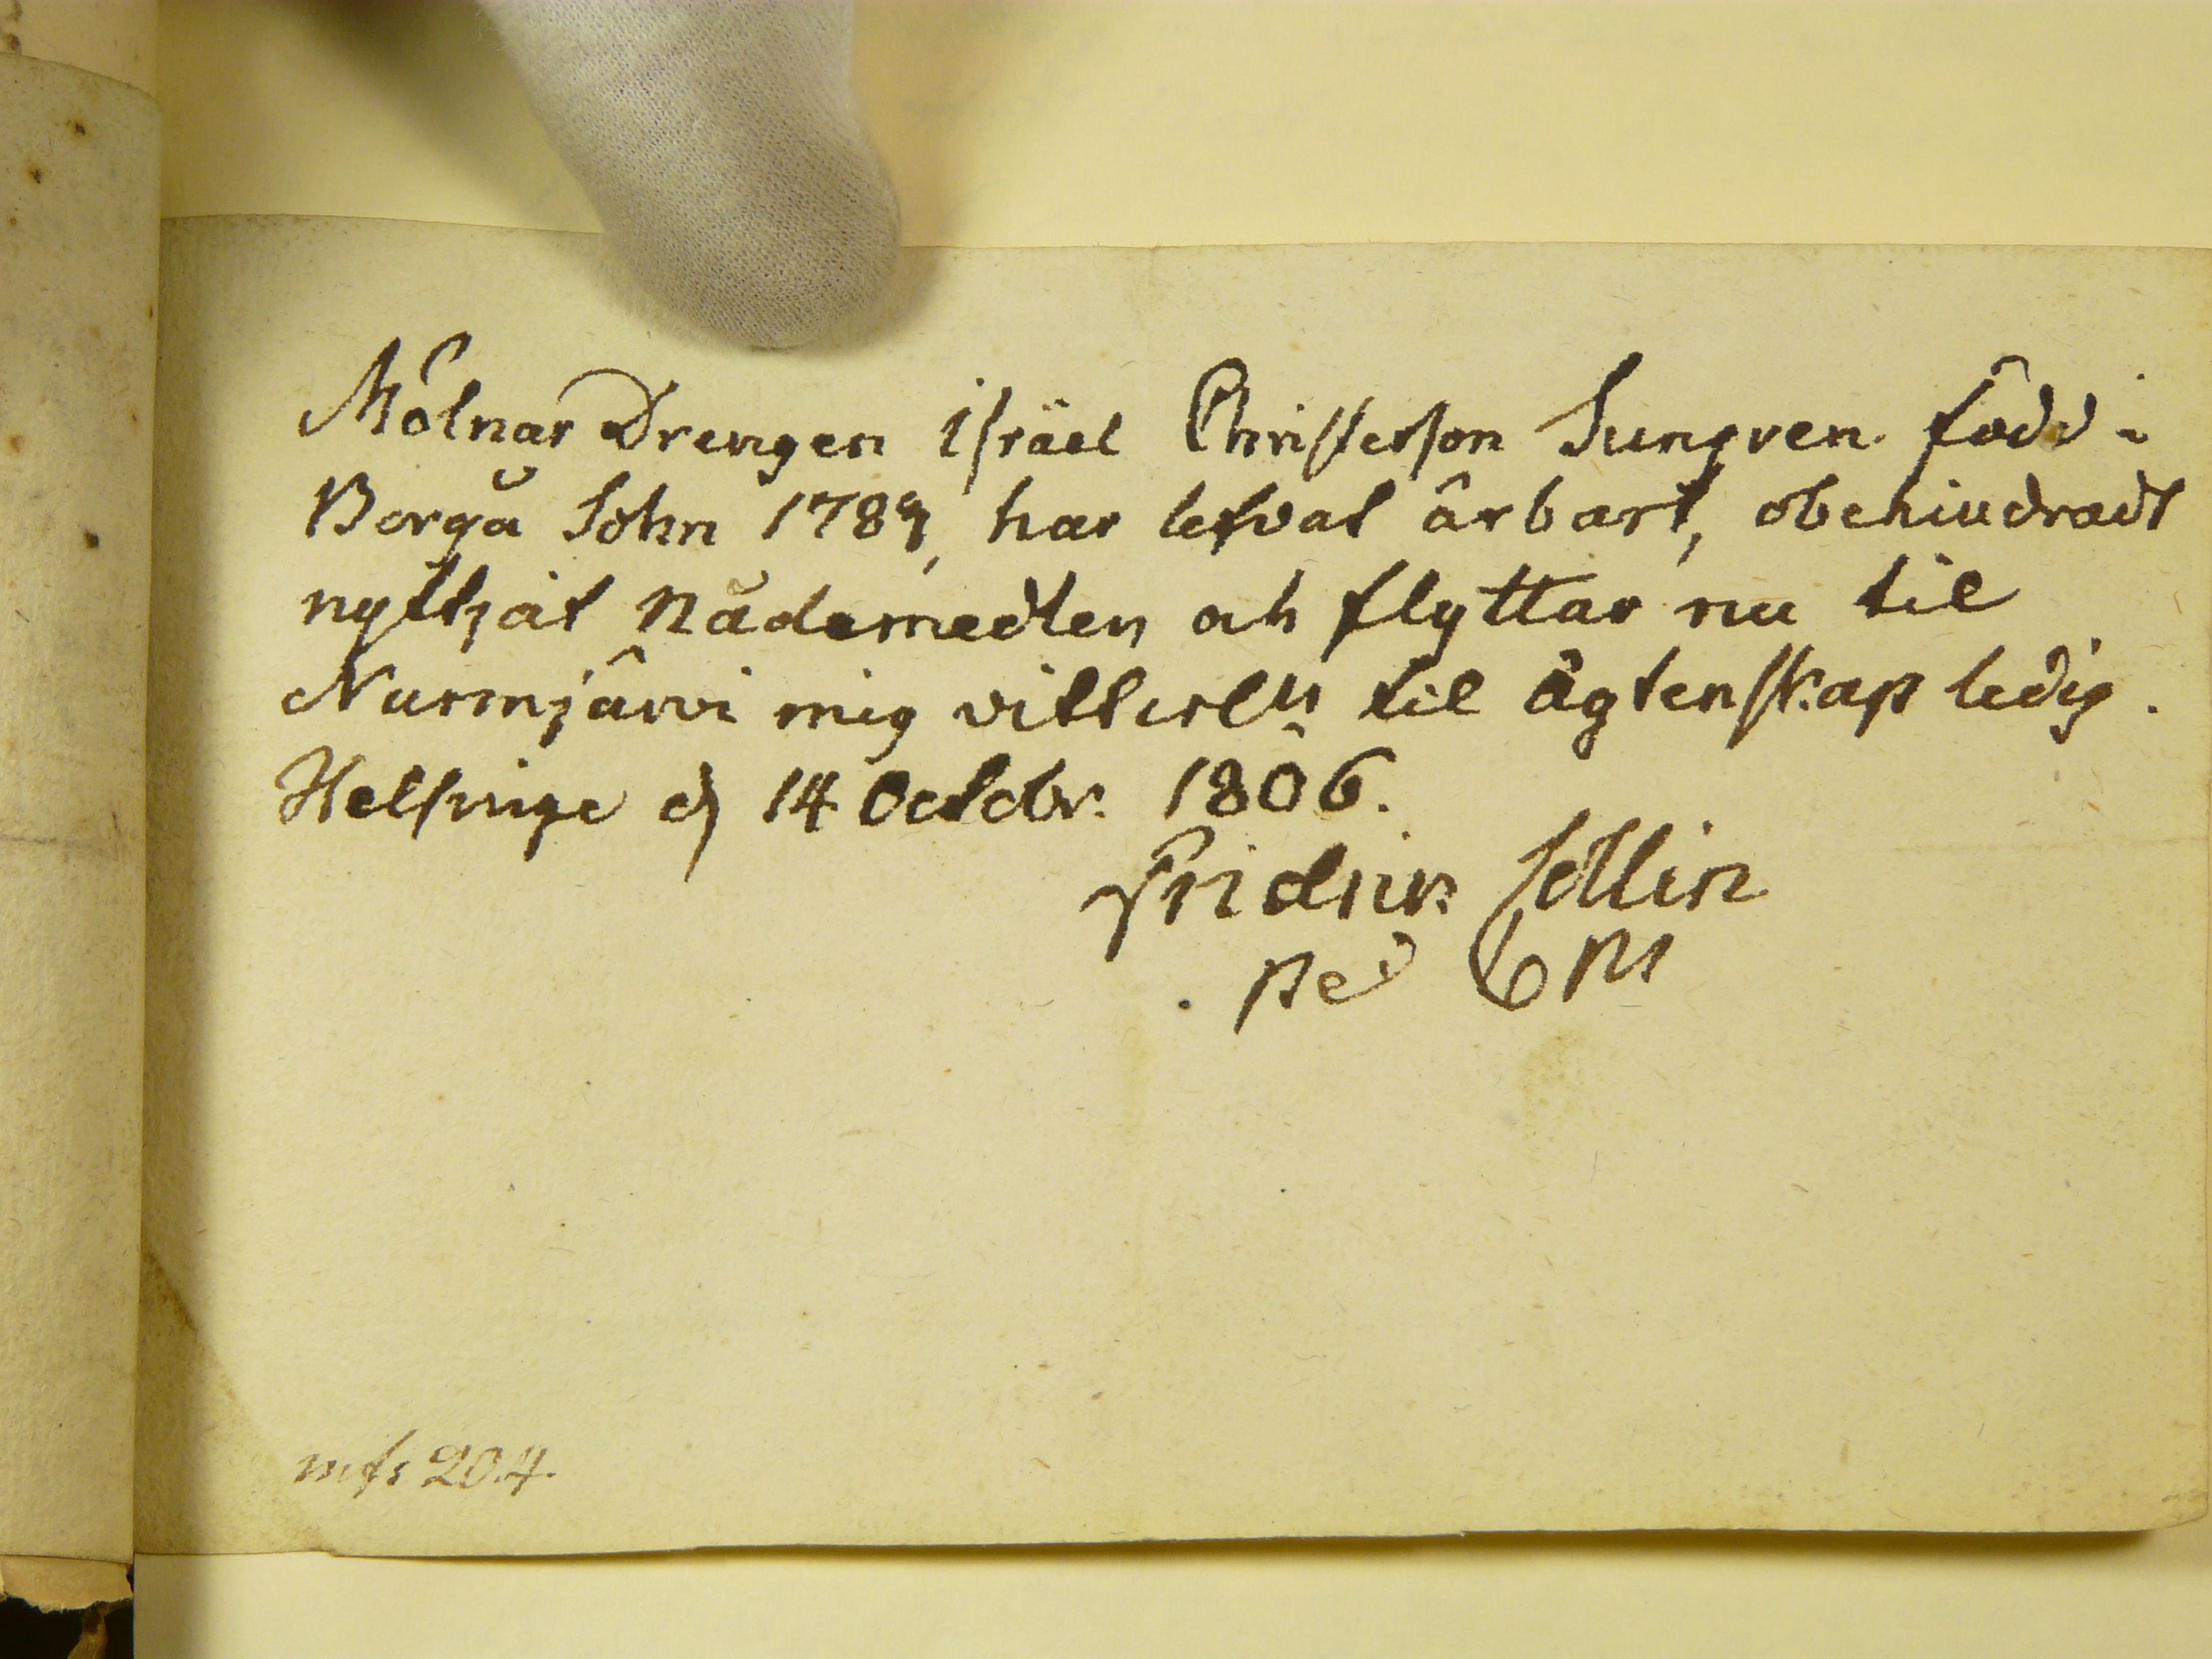 Mölnar Drengen Isräel Christerson Sungren född i
Borgå Sohn 1789, har lefvat ärbart, obehindradt
nyttjat Nådemedlen och flyttar nu til
Nurmjärvi mig vitterl: til ägtenskap ledig.
Helsinge d 14 Octobr: 1806.
Fridric: Sellin
mfs 204.